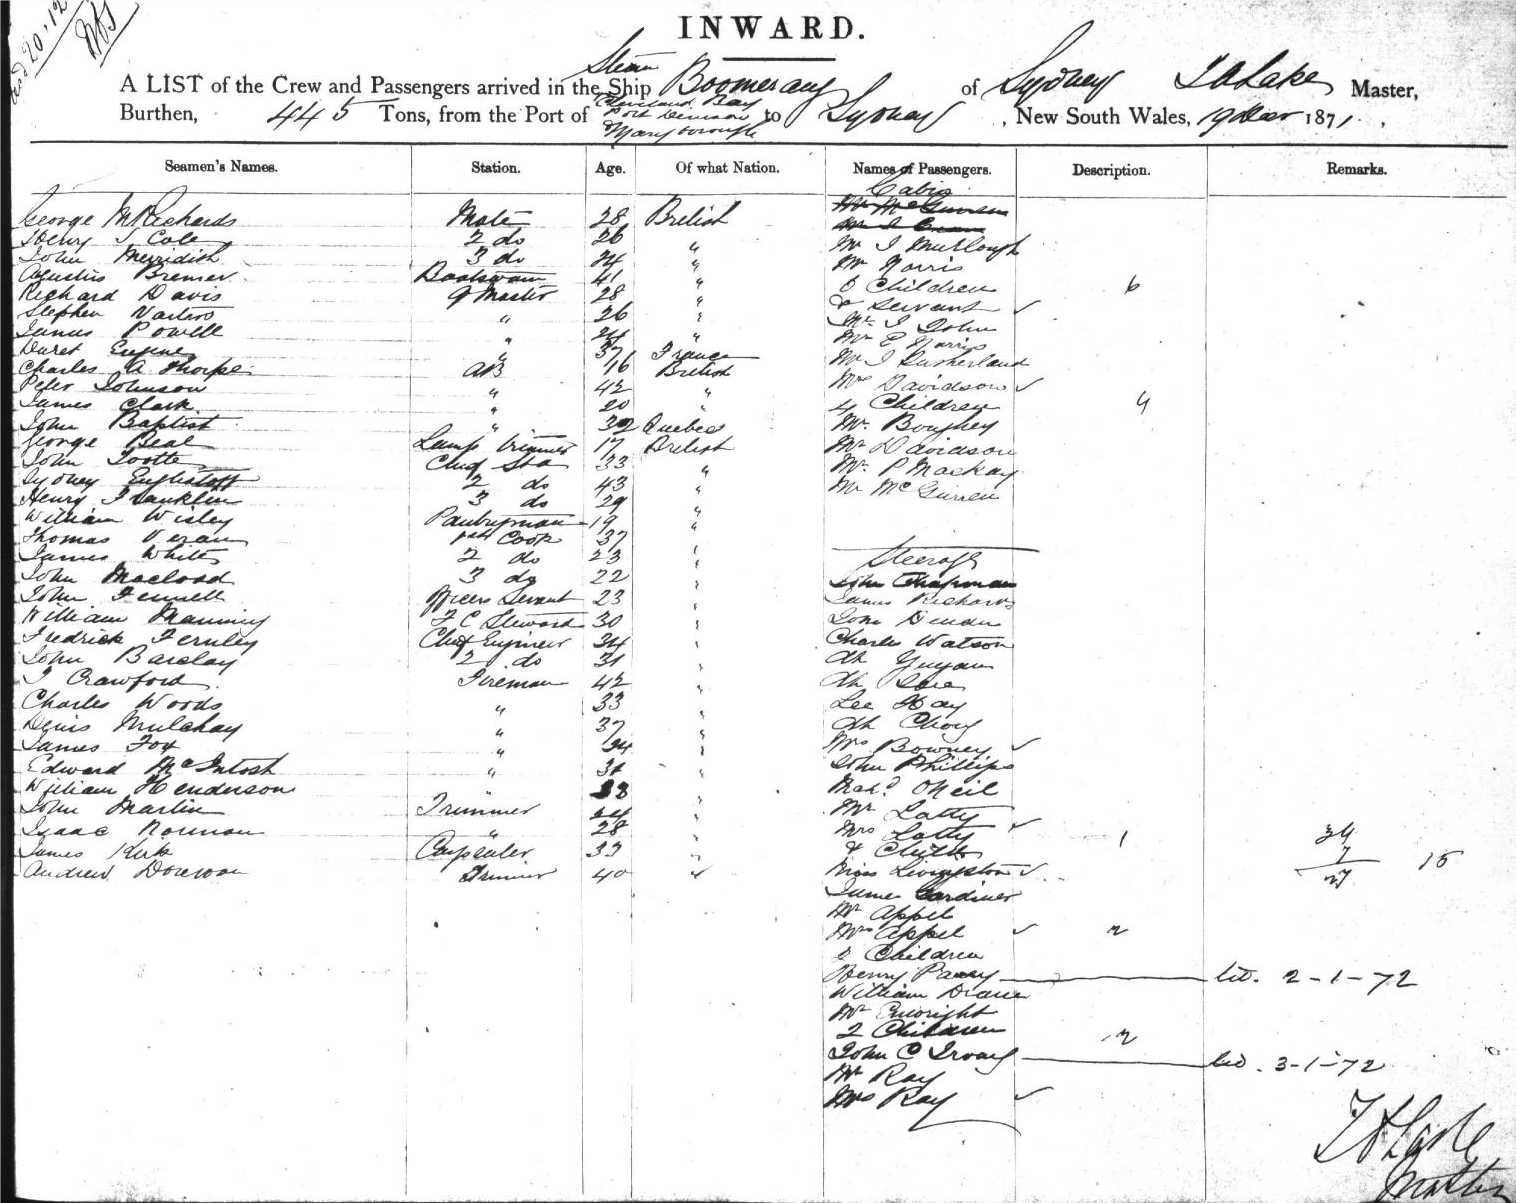 20.12
INWARD.
A LIST of the Crew and Passengers arrived in the Steam Ship Boomerang of Sydney Lake Master,
Burthen, 445 Tons, from the Port of Cleveland Bay Port Denison & Maryborough to Sydney, New South Wales, 1871.
Seamen's Names. Station. Age. Of what Nation. Names of Passengers. Description. Remarks.
Cabin
George Richards Mate 28 British
Henry J Cole 2 do 26 "
John Merridith 3 do 24 " Mr J
Bremer Boatswain 41 " Mr Norris
Richard Davis Q Master 28 " 6 Children 6
Stephen " 26 " & Servant
James Powell " " Mr J John
Eugene " 37 France Mr E Norris
Charles A Thorpe AB 16 British Mr J Sutherland
Peter Johnson " 42 " Mrs Davidson
James Clark " 20 " 4 Children 4
John Baptist " 32 Quebec Mr Boughey
George Beal Lamp trimmer 17 British Mr Davidson
John Tootte Chief Std 33 " Mr P Mackay
Sydney 2 do 43 " Mr McGurren
Henry Franklin 3 do 29 "
William Wisley Pantryman 19 "
Thomas Cook 37
James White 2 do 23 Steerage
John Macleod 3 do 22 John Chapman
John Fennell Officers Servant 23 James Richards
William Manning F C Steward 30 John
Fredrick Fernley Chief Engineer 34 Charles Watson
John Barclay 2 do 31 Ah
J Crawford Fireman 42 Ah
Charles Woods " 33 Lee Hay
Denis Mulchay " 37 Ah Chong
James Fox " 34 Mrs Bowney
Edward McIntosh " 31 John Phillips
William Henderson " 33 O'Neil
John Martin Trimmer 24 Mr Latty
Isaac Norman " 28 Mrs Latty
James Kirk Carpenter 33 & Child 1
Andrew Trimmer 40 Miss Livingston
34
7
27 15
James Gardiner
Mr Appel
Mrs Appel 2
2 Children
Henry 2-1-72
William
Mr Enright
2 Children 2
John C 3-1-72
Mr Ray
Mrs Ray
Lake
Master